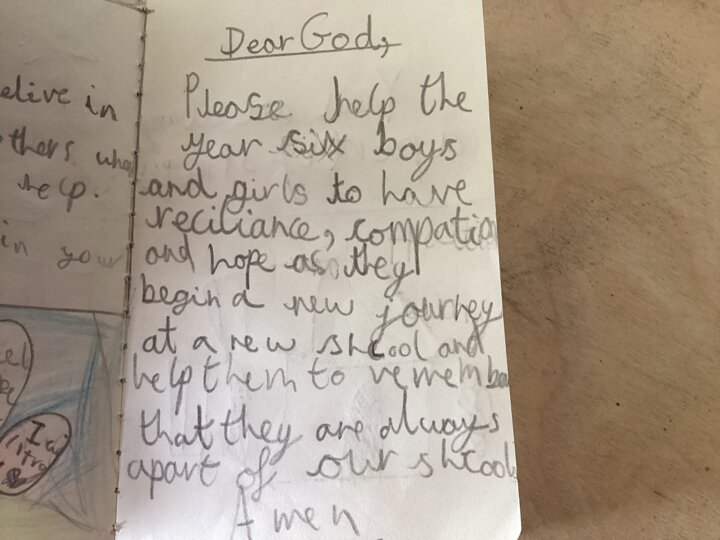 elive in
others who
help.
in your
Dear God,
Please help the
year six boys
and girls to have
reciliance, compatio
and hope as they
begin a new journey
at a new shcool and
help them to remember
that they are always
apart of our shcool
Amen